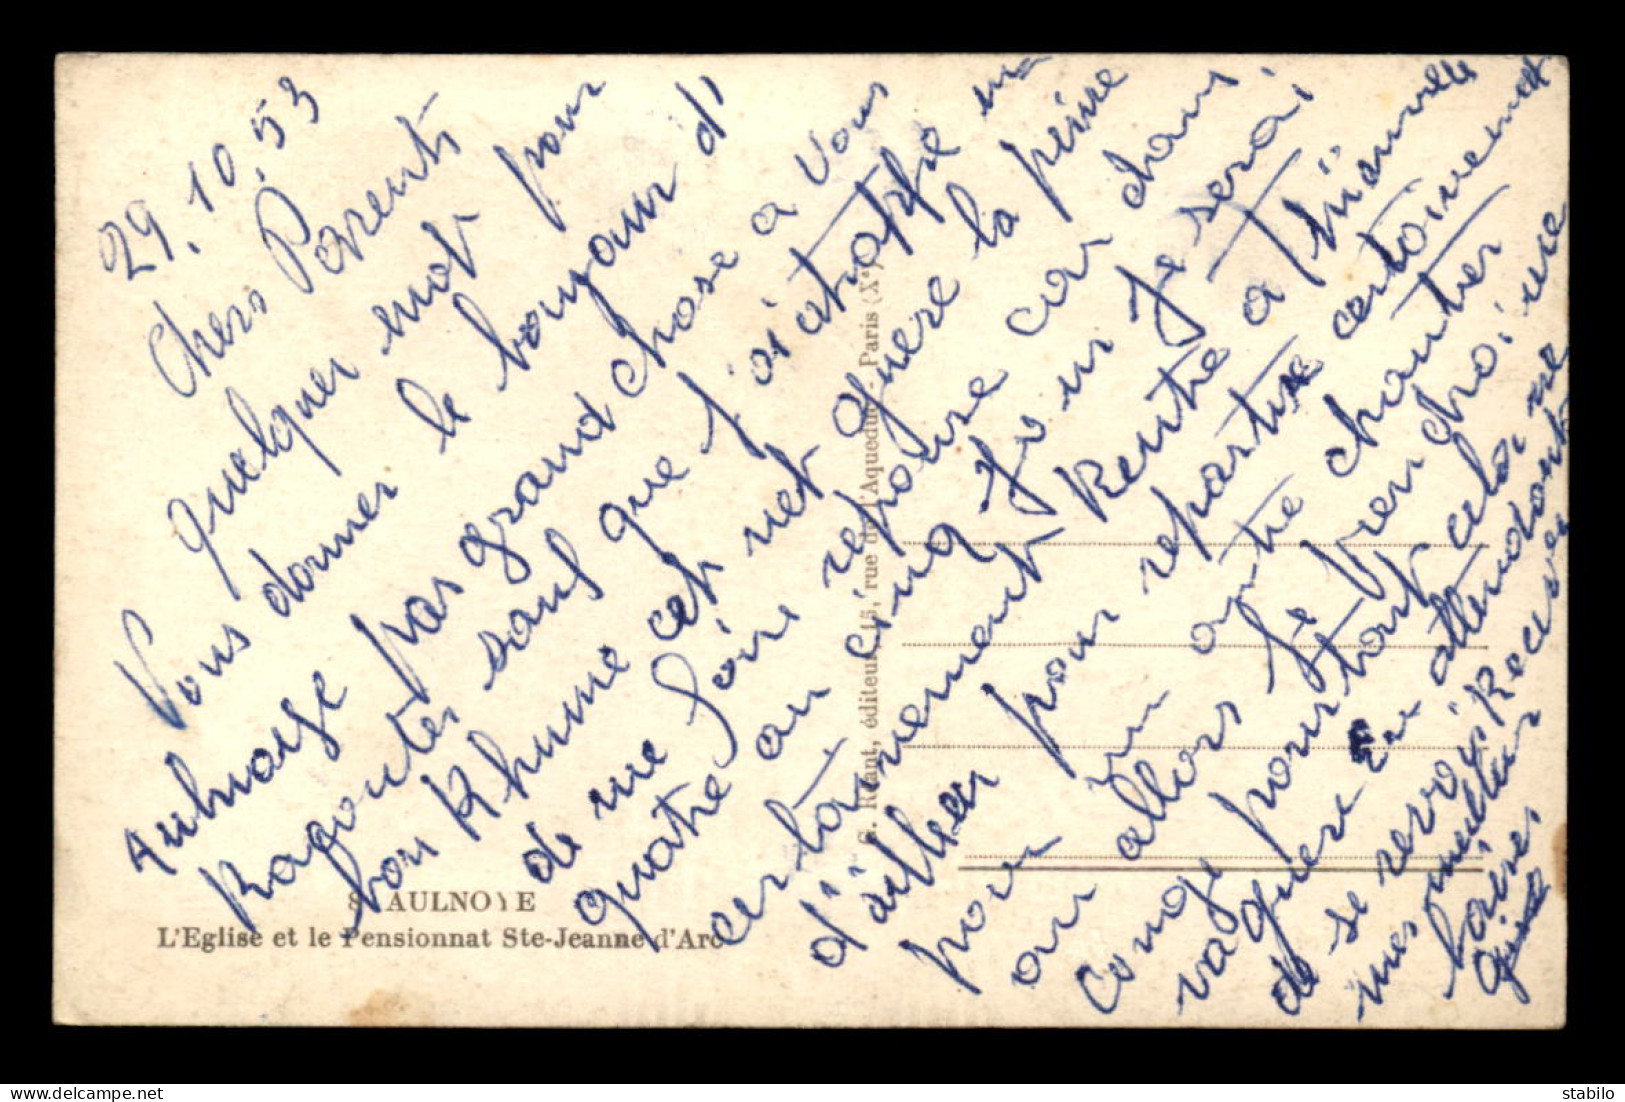 29.10.53
Chers Parents
quelques mot pour
Vous donner le bonjour d'
Aulnoye pas grand chose a Vous
Raqouter sauf que j'ai atrappe un
bon Rhume cet net guere la peine
de me faire reponse car dans
quatre au cinq jour je serai
certainement Rentré a
d'ailleur pour repartire certainement
pour un autre chantier
ou allors je pren choisire
congé pourtout celai ne
vaguere En attendant
de se revoir Recever
mes meilleur
baises
8. AULNOYE
L'Eglise et le Pensionnat Ste-Jeanne d'Arc
G. Réant, éditeur, 15, rue de l'Aqueduc - Paris (Xe)
delcampe.net
stabilo